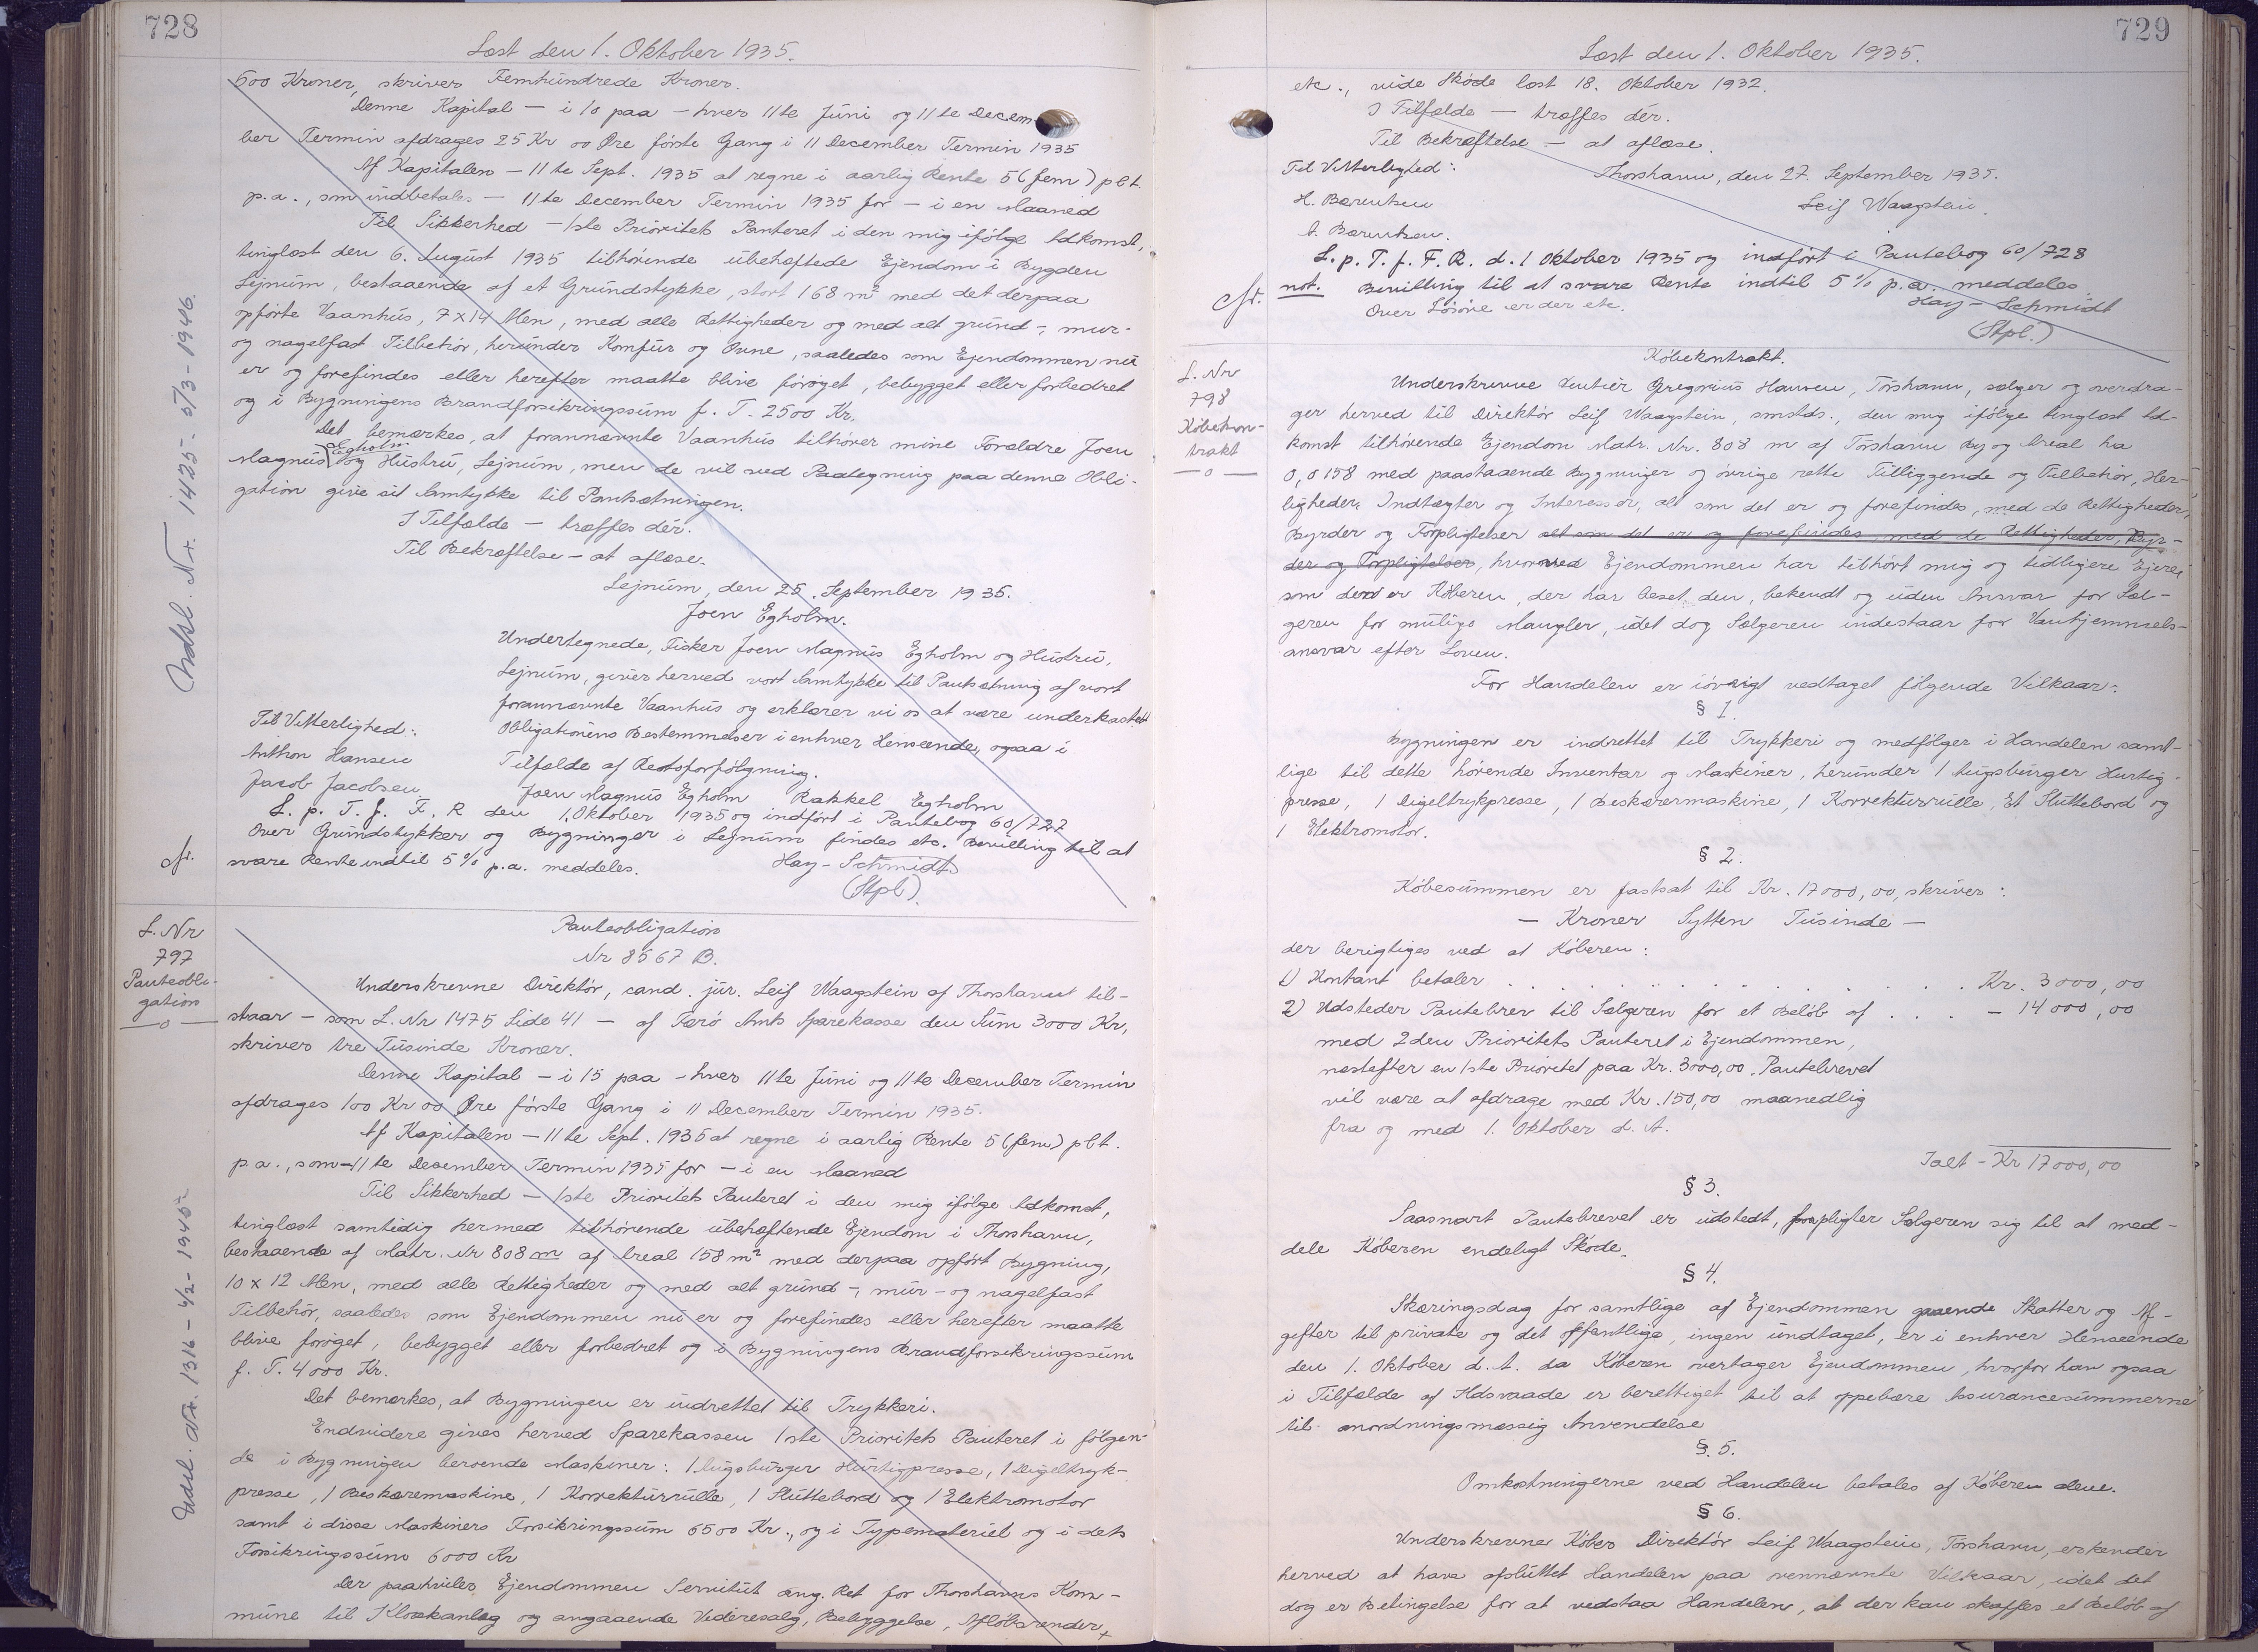 728
Læst den 1. Oktober 1935.
500 Kroner, skriver Femhundrede Kroner.
Denne Kapital — i 10 paa — hver 11te Júni og 11te Decem
ber Termin afdrages 25 Kr 00 Øre første Gang i 11 December Termin 1935
Af Kapitalen — 11te Sept. 1935 at regne i aarlig Rente 5 (fem) pCt.
p.a., som indbetales — 11te December Termin 1935 for — i en Maaned
Til Sikkerhed — 1ste Prioritets Panteret i den mig ifølge Adkomst,
tinglæst den 6. August 1935 tilhørende ubehæftede Ejendom i Bygden
Lejnum, bestaaende af et Grundstykke, stort 168 m² med det derpaa
opførte Vaanhus, 7 x 14 Alen, med alle Rettigheder og med alt grund-, mur-
og nagelfast Tilbehør, herunder Komfur og Ovne, saaledes som Ejendommen nu
er og forefindes eller herefter maatte blive forøget, bebygget eller forbedret
og i Bygningens Brandforsikringssum f. T. 2500 Kr.
Det bemærkes, at forannævnte Vaanhus tilhører mine Forældre Joen
Egholm
Magnus og Hustru, Lejnum, men de vil ved Paategning paa denne Obli-
gation give sit Samtykke til Pantsætningen.
I Tilfælde — træffes dér.
Til Bekræftelse — at aflæse.
Lejnum, den 25. September 1935.
Joen Egholm.
Undertegnede, Fisker Joen Magnus Egholm og Hustru,
Lejnum, giver herved vort Samtykke til Pantsætning af vort
forannævnte Vaanhus og erklærer vi os at være underkastet
Til Vitterlighed: Obligationens Bestemmelser i enhver Henseende, ogsaa i
Anthon Hansen Tilfælde af Retsforfølgning.
Jacob Jacobsen Joen Magnus Egholm Rakkel Egholm
L. p. T. f. F. R den 1. Oktober 1935 og indført i Pantebog 60/727
Over Grundstykker og Bygninger i Lejnum findes etc. Bevilling til at
cfr. svare Rente indtil 5% p.a. meddeles. Hay-Schmidt
(Stpl.)
Indsl. Nr. 1425 - 5/3 - 1946.
L. Nr
797
Panteobli-
gation
—o—
Panteobligation
Nr 8567 B.
Underskrevne Direktør, cand. jur. Leif Waagstein af Thorshavn til-
staar — som L. Nr 1475 Side 41 — af Færø Amts Sparekasse den Sum 3000 Kr,
skriver tre Tusinde Kroner.
Denne Kapital — i 15 paa — hver 11te Júni og 11te December Termin
afdrages 100 Kr 00 Øre første Gang i 11 December Termin 1935.
Af Kapitalen — 11te Sept. 1935 at regne i aarlig Rente 5 (fem) pCt.
p.a., som — 11te December Termin 1935 for — i en Maaned
Til Sikkerhed — 1ste Prioritets Panteret i den mig ifølge Adkomst,
tinglæst samtidig hermed tilhørende ubehæftende Ejendom i Thorshavn,
bestaaende af Matr. Nr 808 m af Areal 158 m² med derpaa opført Bygning,
10 x 12 Alen, med alle Rettigheder og med alt grund-, mur- og nagelfast
Tilbehør, saaledes som Ejendommen nu er og forefindes eller herefter maatte
blive forøget, bebygget eller forbedret og i Bygningens Brandforsikringssum
f. T. 4000 Kr.
Det bemærkes, at Bygningen er indrettet til Trykkeri.
Endvidere gives herved Sparekassen 1ste Prioritets Panteret i følgen-
de i Bygningen beroende Maskiner: 1 Augsburger Hurtigpresse, 1 Digeltryk-
presse, 1 Beskæremaskine, 1 Korrekturrulle, 1 Sluttebord og 1 Elektromotor
samt i disse Maskiners Forsikringssum 6500 Kr., og i Typemateriel og i dets
Forsikringssum 6000 Kr
Der paahviler Ejendommen Servitut ang. Ret for Thorshavns Kom-
mune til Kloakanlæg og angaaende Videresalg, Bebyggelse, Afløbsrender
Udsl. Nr. 1316 - 4/2 - 1945
729
Læst den 1. Oktober 1935.
etc., vide Skøde læst 18. Oktober 1932.
I Tilfælde — træffes dér.
Til Bekræftelse — at aflæse.
Til Vitterlighed: Thorshavn, den 27. September 1935.
H. Bærentsen Leif Waagstein.
Bærentsen.
L. p. T. f. F. R. d. 1 Oktober 1935 og indført i Pantebog 60/728
cfr. not. Bevilling til at svare Rente indtil 5% p.a. meddeles.
Over Løsøre er der etc. Hay-Schmidt
(Stpl.)
L. Nr
798
Købekon-
trakt
—o—
Købekontrakt.
Underskrevne Rentiér Gregorius Hansen, Tórshavn, sælger og overdra-
ger herved til Direktør Leif Waagstein, smstds., den mig ifølge tinglæst Ad-
komst tilhørende Ejendom Matr. Nr. 808 m af Tórshavn By og Areal ha
0,0158 med paastaaende Bygninger og øvrige rette Tilliggende og Tilbehør, Her-
ligheder, Indtægter og Interesser, alt som det er og forefindes, med de Rettigheder,
Byrder og Forpligtelser alt som det er og forefindes med de Rettigheder, Byr-
der og Forpligtelser, hvormed Ejendommen har tilhørt mig og tidligere Ejere,
som den er Køberen, der har beset den, bekendt og uden Ansvar for Sæl-
geren for mulige Mangler, idet dog Sælgeren indestaar for Vanhjemmels-
ansvar efter Loven.
For Handelen er iøvrigt vedtaget følgende Vilkaar:
§ 1.
Bygningen er indrettet til Trykkeri og medfølger i Handelen samt-
lige til dette hørende Inventar og Maskiner, herunder 1 Augsburger Hurtig-
presse, 1 Digeltrykpresse, 1 Beskærermaskine, 1 Korrekturrulle, Et Sluttebord og
1 Elektromotor.
§ 2.
Købesummen er fastsat til Kr. 17000,00, skriver:
— Kroner Sytten Tusinde —
der berigtiges ved at Køberen:
1) Kontant betaler . . . . . . . . . . . . Kr. 3000,00
2) Udsteder Pantebrev til Sælgeren for et Beløb af . . . . — 14000,00
med 2den Prioritets Panteret i Ejendommen,
næstefter en 1ste Prioritet paa Kr. 3000,00. Pantebrevet
vil være at afdrage med Kr. 150,00 maanedlig
fra og med 1. Oktober d. A.
Ialt — Kr 17000,00
§ 3.
Saasnart Pantebrevet er udstedt, forpligter Sælgeren sig til at med-
dele Køberen endeligt Skøde.
§ 4.
Skæringsdag for samtlige af Ejendommen gaaende Skatter og Af-
gifter til private og det offentlige, ingen undtaget, er i enhver Henseende
den 1. Oktober d. A. da Køberen overtager Ejendommen, hvorfor han ogsaa
i Tilfælde af Ildsvaade er berettiget til at oppebære Assurancesummerne
til anordningsmæssig Anvendelse
§. 5.
Omkostningerne ved Handelen betales af Køberen alene.
§ 6.
Underskrevne Køber Direktør Leif Waagstein, Tórshavn, erkender
herved at have afsluttet Handelen paa ovennævnte Vilkaar, idet det
dog er Betingelse for at vedstaa Handelen, at der kan skaffes et Beløb af